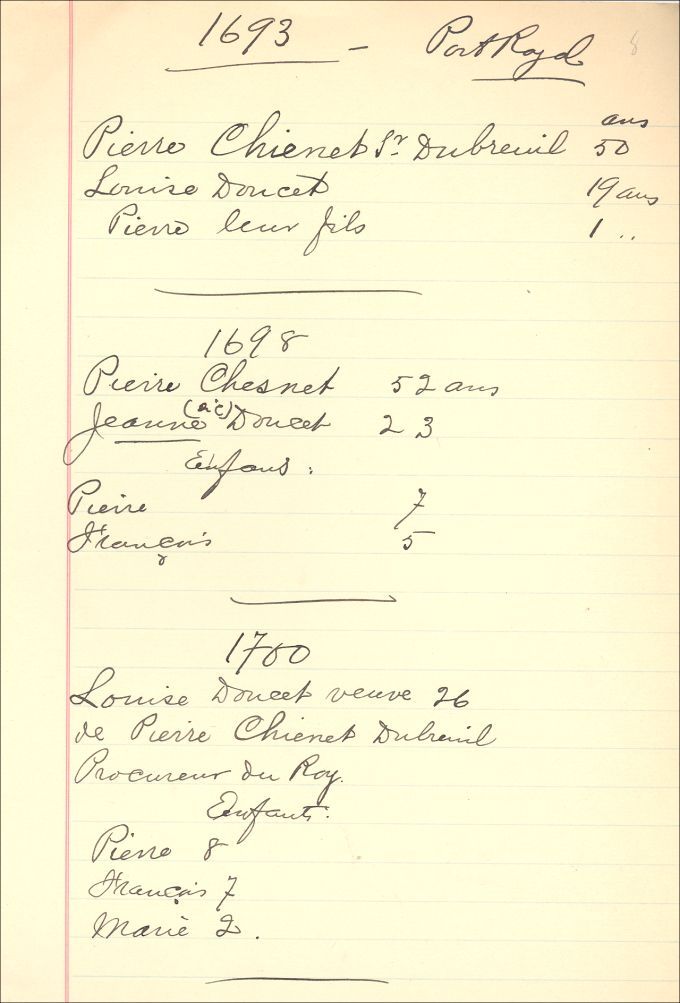 1693 - Port Royal
8
ans
Pierre Chienet Sr Dubreuil 50
Louise Doucet 19 ans
Pierre leur fils 1 ..
1698
Pierre Chesnet 52 ans
(sic)
Jeanne Doucet 23
Enfans :
Pierre 7
François 5
1700
Louise Doucet veuve 26
de Pierre Chienet Dubreuil
Procureur du Roy.
Enfants:
Pierre 8
François 7
Marie 2.